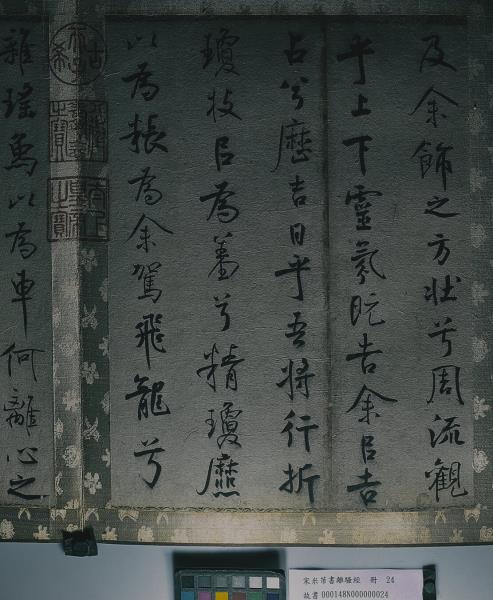 及余飾之方壯兮周流觀
乎上下靈氛既告余㠯吉
占兮歷吉日乎吾將行折
瓊枝㠯為羞兮精瓊爢
以為粻為余駕飛龍兮
雜瑤象以為車何離心之
古希天子
宋米芾書離騷經 冊 24
故書000148N000000024